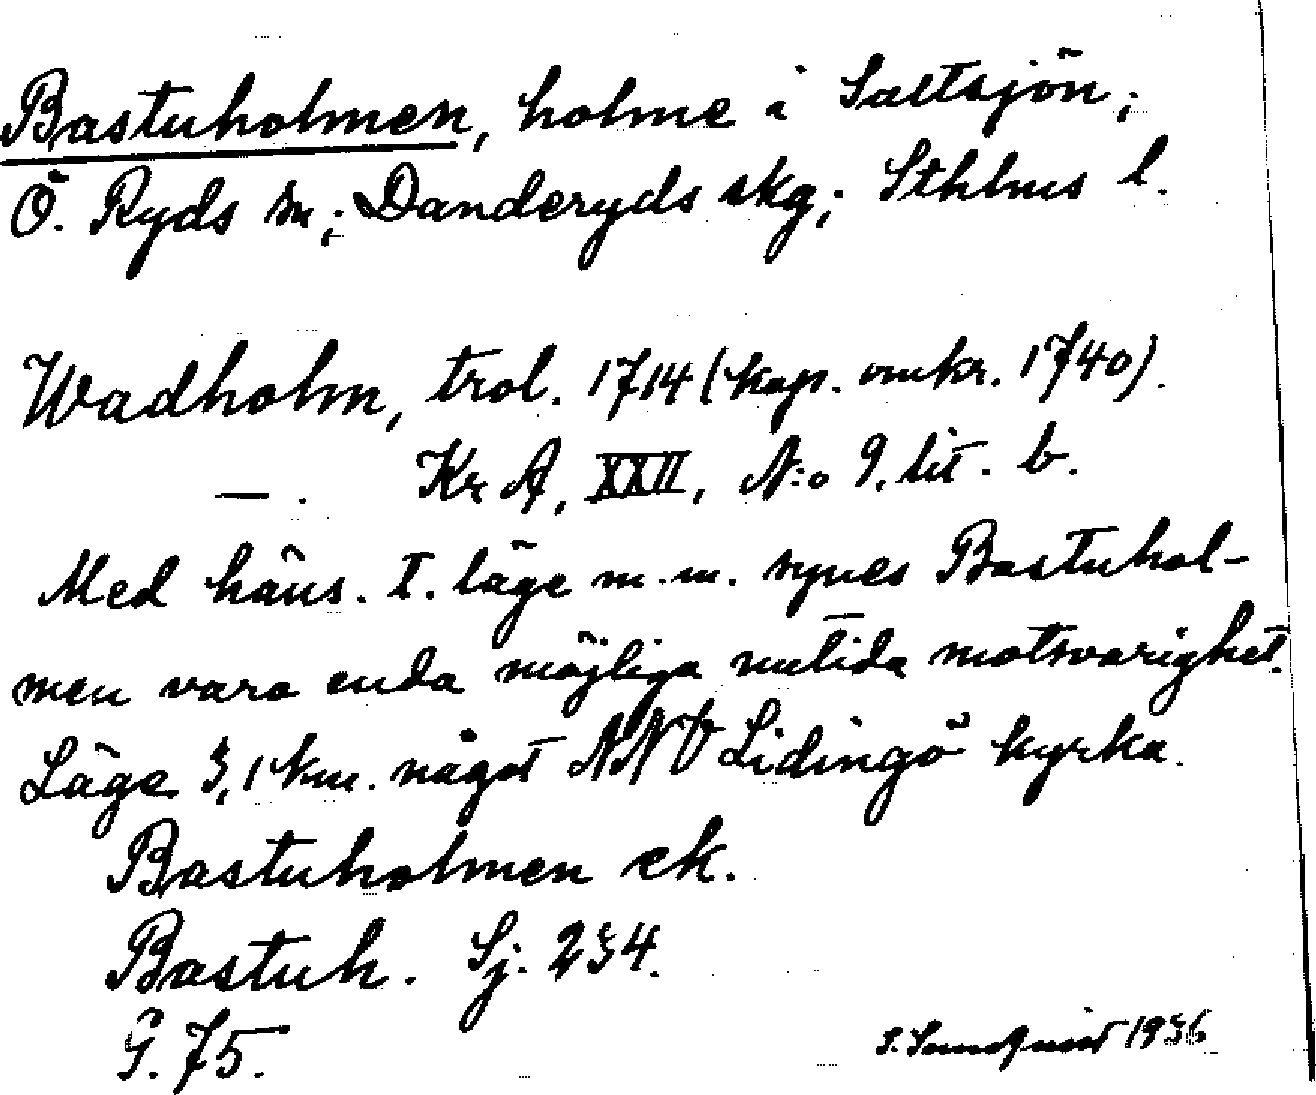 Bastuholmen, holme i Saltsjön;
Ö. Ryds sn; Danderyds skg; Sthlms l.
Wadholm, trol. 1714 (kop. omkr. 1740).
—. Kr A, XXII, N:o 9, lit. b.
Med häns. t. läge m.m. synes Bastuhol-
men vara enda möjliga nutida motsvarighet.
Läge 3,1 km. något NNV Lidingö kyrka.
Bastuholmen ek.
Bastuh. Sj. 234.
G. 75.
1936